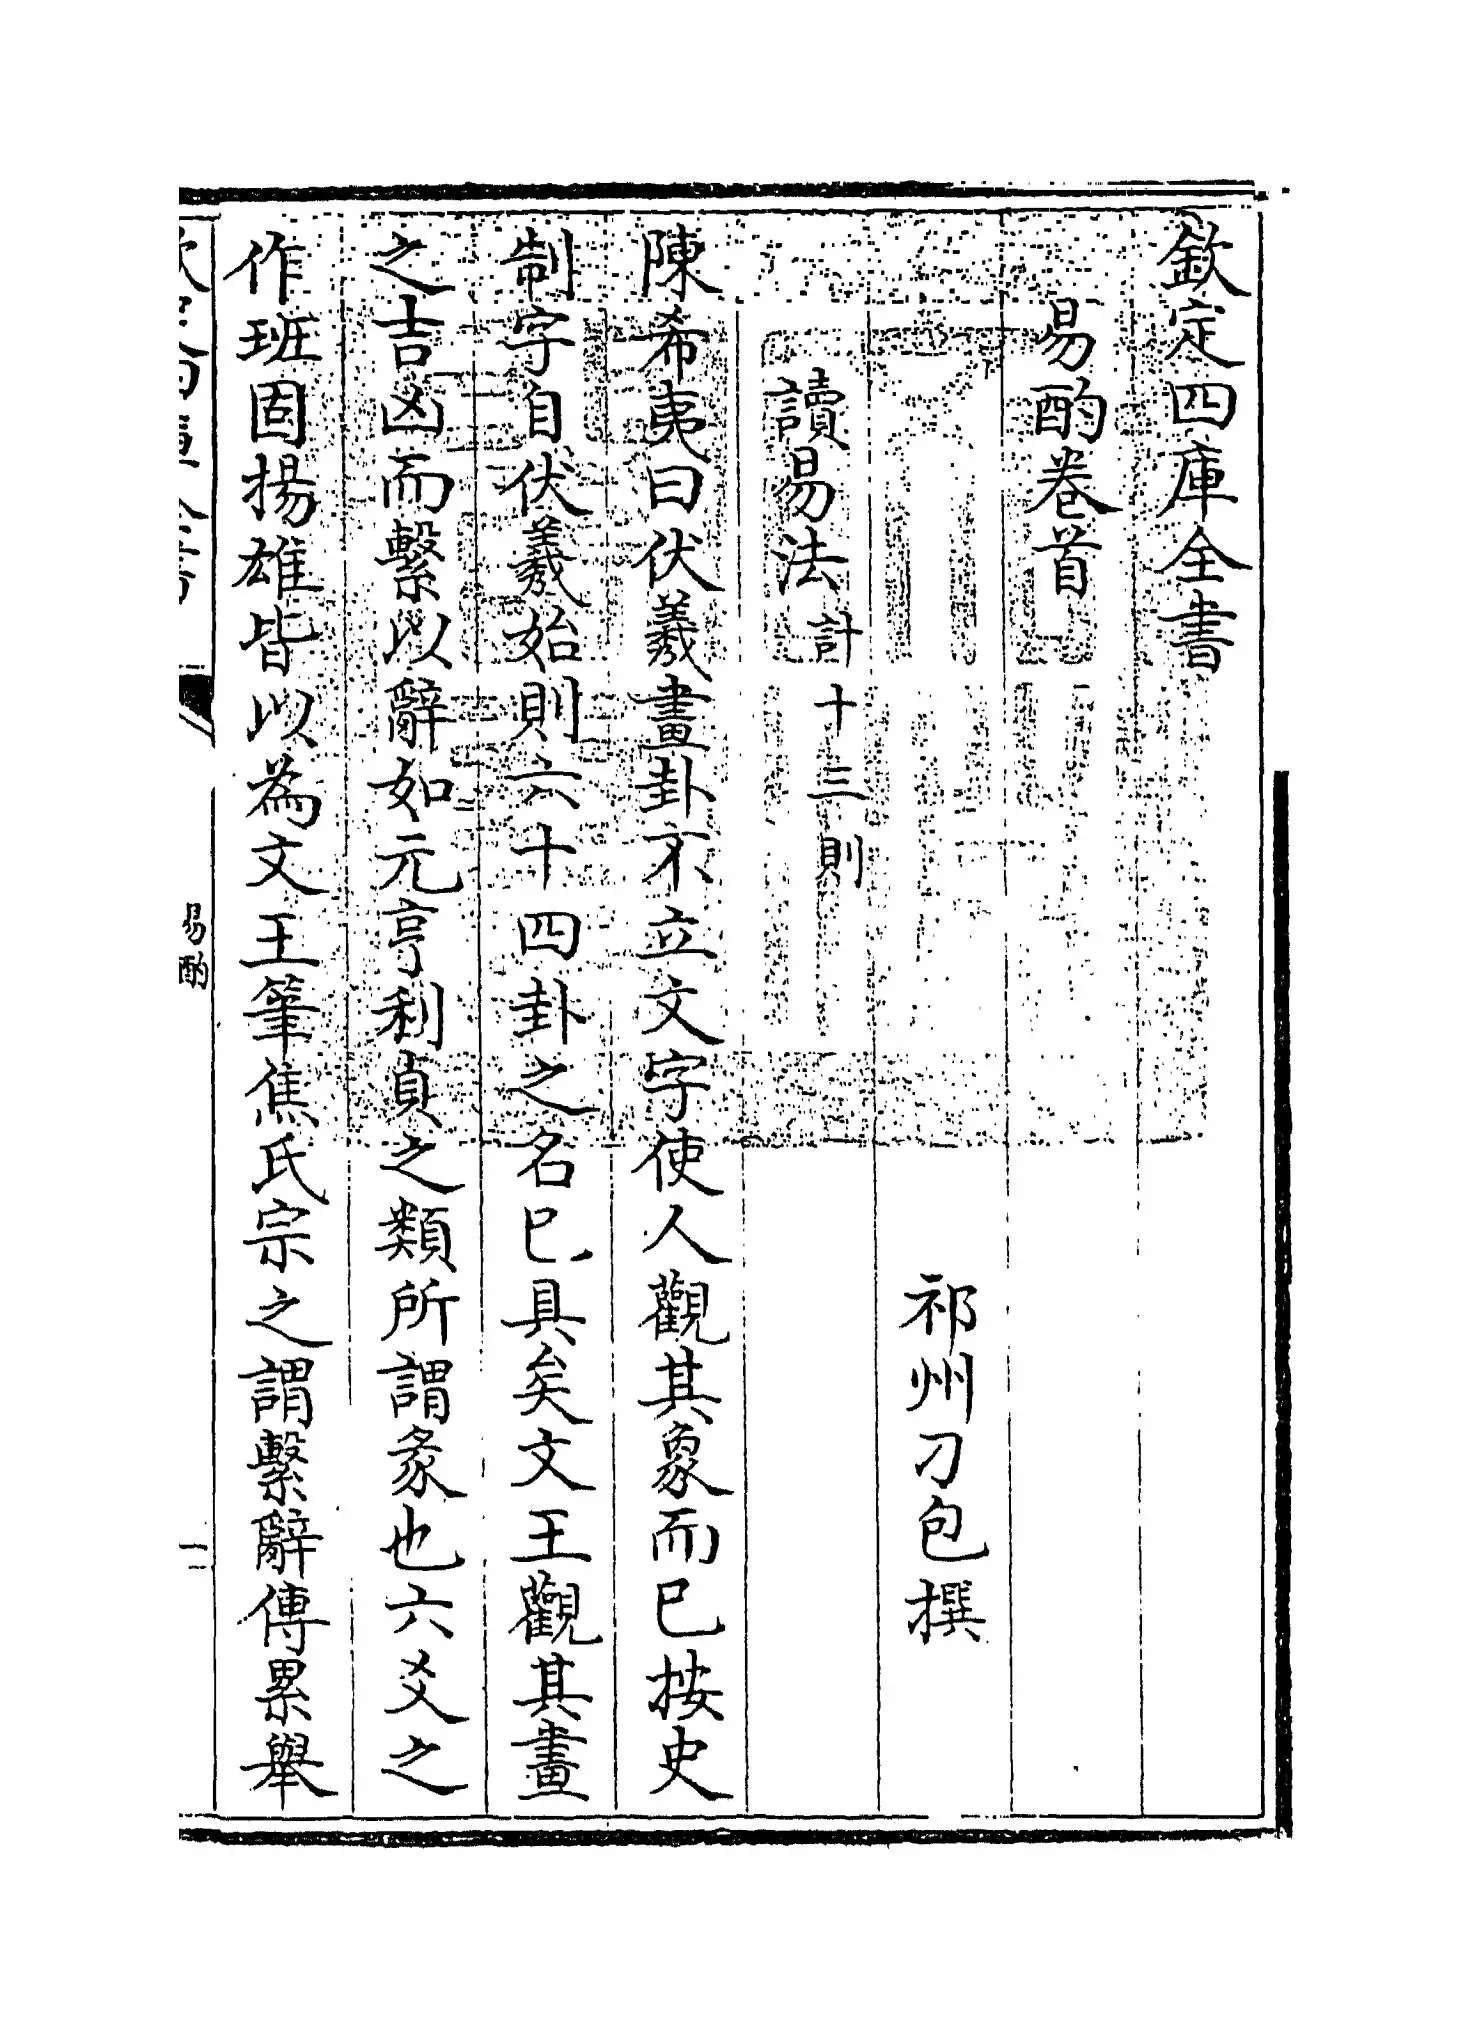 欽定四庫全書
易酌卷首
祁州刁包撰
讀易法計十三則
陳希夷曰伏羲畫卦不立文字使人觀其象而已按史
制字自伏羲始則六十四卦之名已具矣文王觀其畫
之吉凶而繫以辭如元亨利貞之類所謂彖也六爻之
作班固揚雄皆以為文王筆焦氏宗之謂繫辭傳累舉
易酌